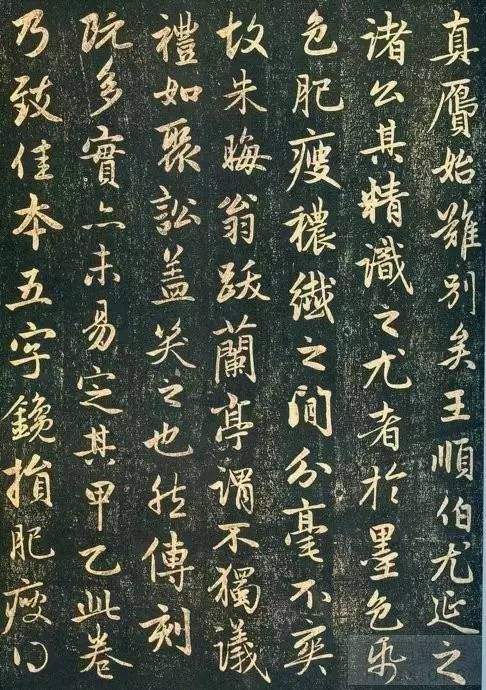 真贋始難別矣王順伯尤延之
諸公其精識之尤者於墨色紙
色肥瘦穠纖之間分毫不爽
故朱晦翁跋蘭亭謂不獨議
禮如聚訟盖笑之也然傳刻
既多實亦未易定其甲乙此卷
乃致佳本五字鑱損肥瘦得